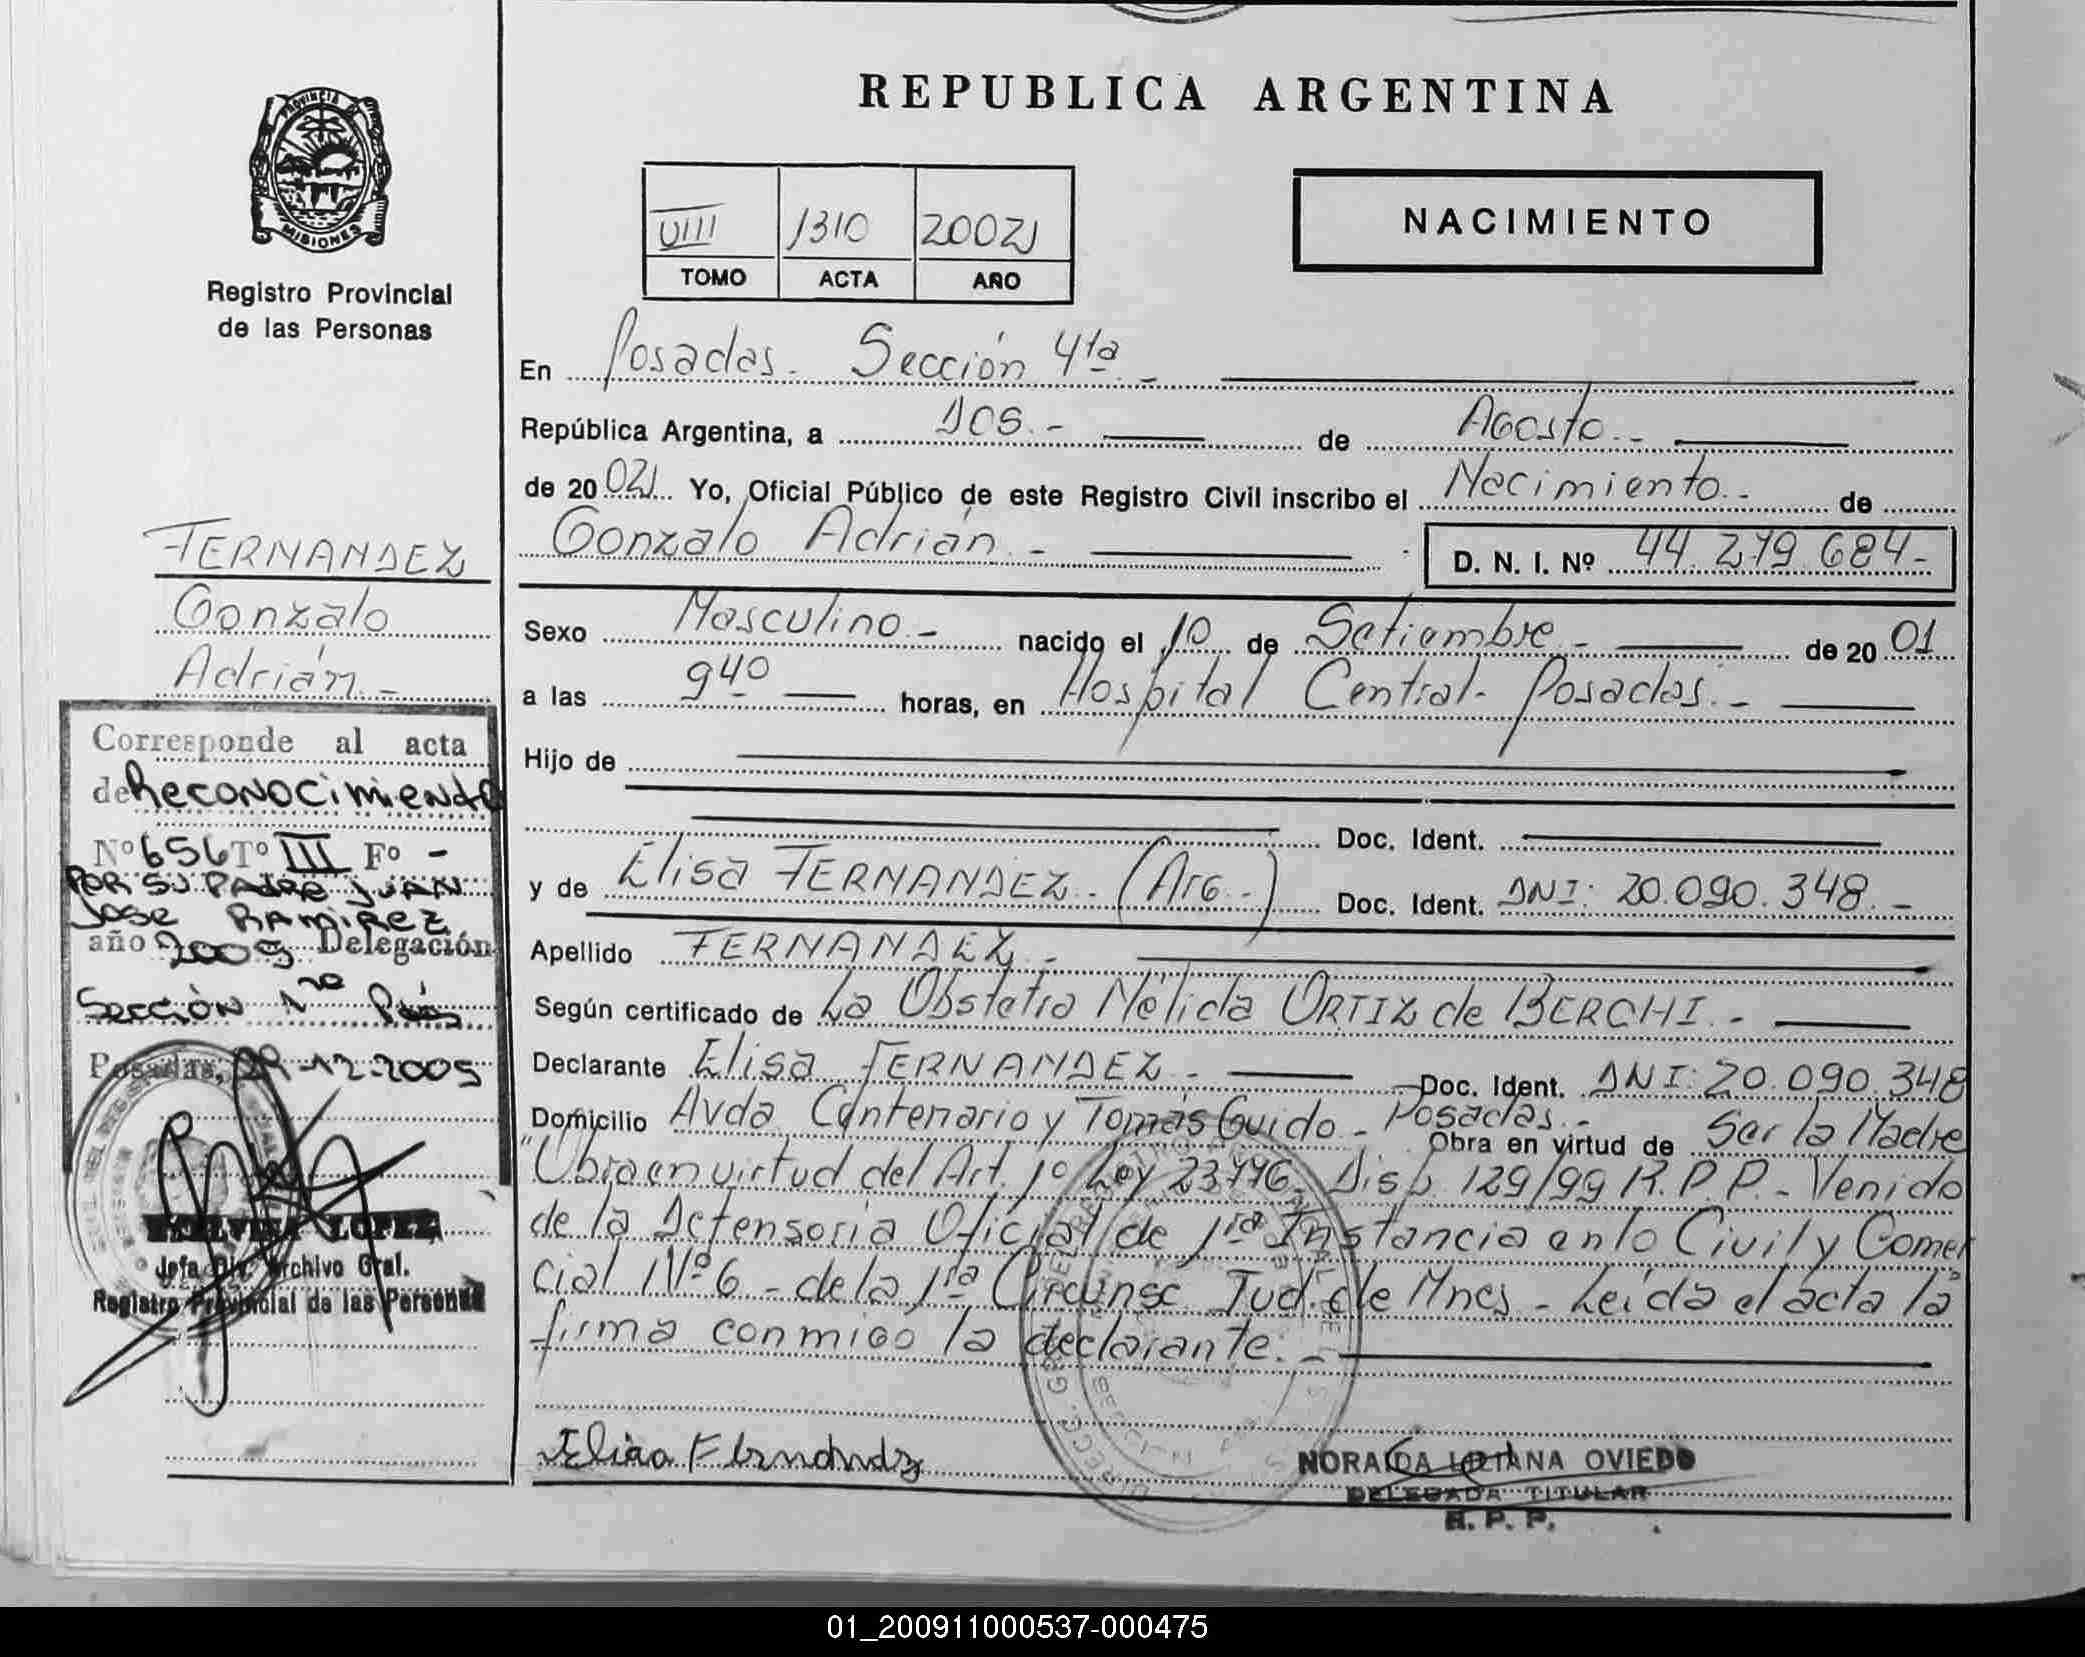 REPUBLICA ARGENTINA
PROVINCIA DE
MISIONES
Registro Provincial
de las Personas
VIII 1310 2002
TOMO ACTA AÑO
NACIMIENTO
En Posadas. Sección 4ta. -
República Argentina, a DOS. - de Agosto. -
de 20 02 Yo, Oficial Público de este Registro Civil inscribo el Nacimiento. - de
Gonzalo Adrián. - D. N. I. Nº 44.279.684-
Sexo Masculino. - nacido el 10 de Setiembre. - de 20 01
a las 9 40 horas, en Hospital Central- Posadas. -
Hijo de
Doc. Ident.
y de Elisa FERNANDEZ. (Arg.-) Doc. Ident. DNI: 20.090.348. -
Apellido FERNANDEZ. -
Según certificado de La Obstetra Nélida ORTIZ de BERCHI. -
Declarante Elisa FERNANDEZ. - Doc. Ident. DNI: 20.090.348
Domicilio Avda. Centenario y Tomás Guido - Posadas. -
Obra en virtud de Ser la Madre
"Obra en virtud del Art. 1º Ley 23.776. Disp. 129/99 R.P.P. - Venido
de la Defensoria Oficial de 1ra Instancia en lo Civil y Comer
cial Nº 6 - de la 1ra Circunsc. Jud. de Mnes - Leída el acta la
firma conmigo la declarante. -
Elisa Fernandez
NORA LILIANA OVIEDO
DELEGADA TITULAR
R. P. P.
FERNANDEZ
Gonzalo
Adrián. -
Corresponde al acta
de Reconocimiento
Nº 656 Tº III Fº -
POR SU PADRE JUAN
JOSE RAMIREZ
año 2005 Delegación
Sección 1ra Pdas
Posadas, 29-12-2005
LOPEZ
Jefa Div. Archivo Gral.
Registro Provincial de las Personas
01_200911000537-000475